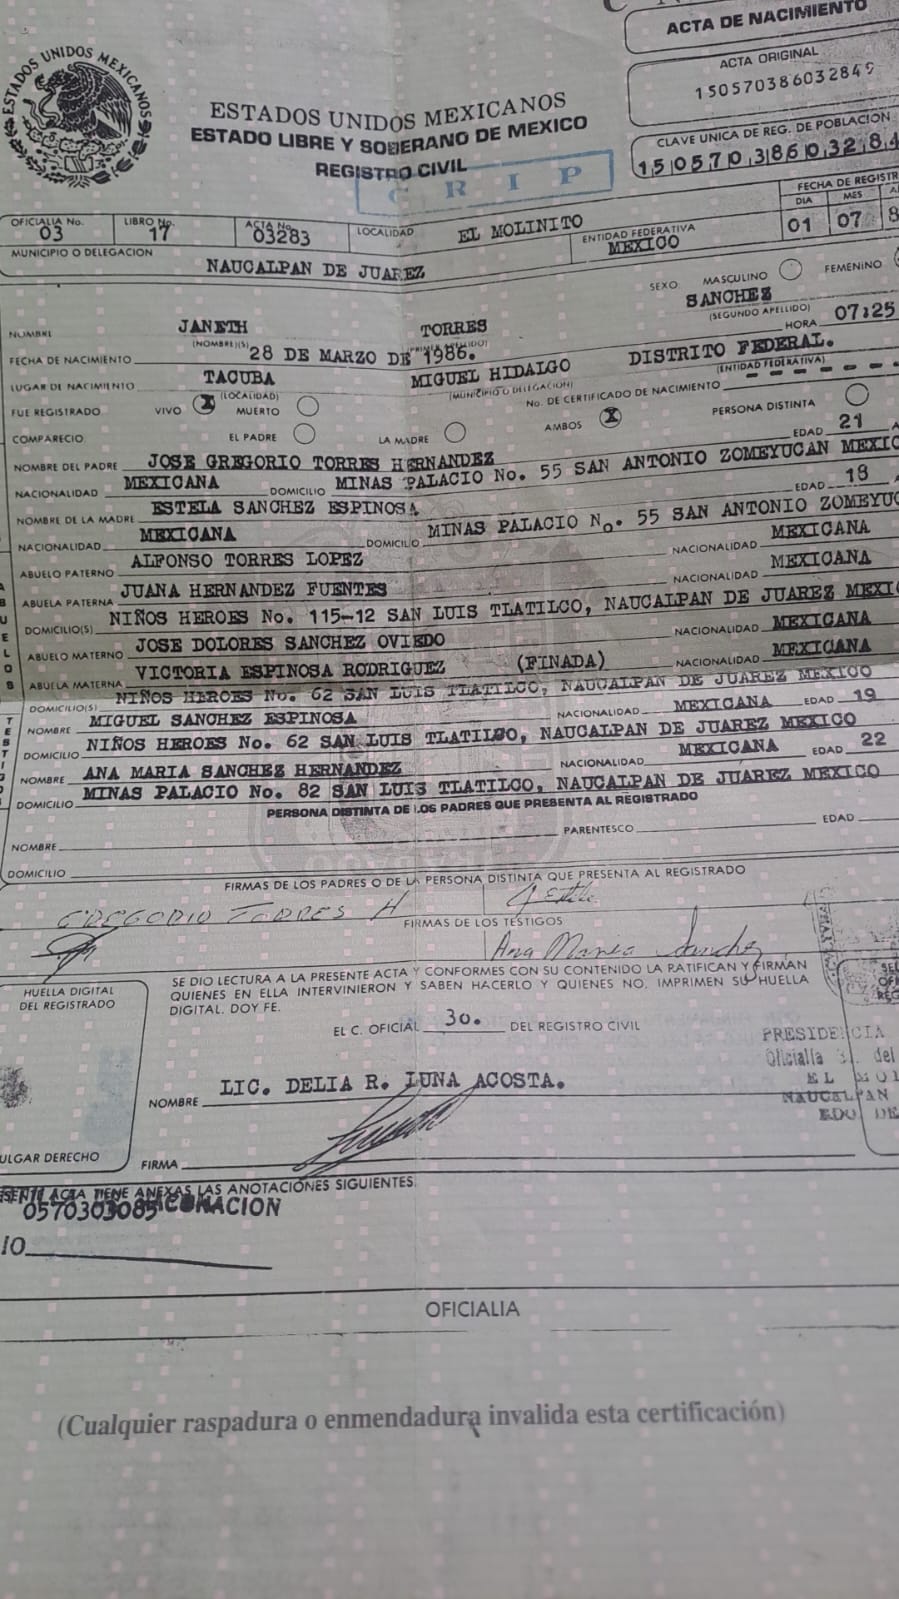 ACTA DE NACIMIENTO
ACTA ORIGINAL
150570386032849
CLAVE UNICA DE REG. DE POBLACION
ESTADOS UNIDOS MEXICANOS
ESTADOS UNIDOS MEXICANOS
ESTADO LIBRE Y SOBERANO DE MEXICO
REGISTRO CIVIL
C R I P
OFICIALIA No. 03 LIBRO No. 17 ACTA No. 03283 LOCALIDAD EL MOLINITO ENTIDAD FEDERATIVA MEXICO
DIA 01 MES 07
MUNICIPIO O DELEGACION NAUCALPAN DE JUAREZ
SEXO: MASCULINO FEMENINO
NOMBRE JANETH TORRES SANCHEZ
(NOMBRE(S) (PRIMER APELLIDO) (SEGUNDO APELLIDO)
FECHA DE NACIMIENTO 28 DE MARZO DE 1986. HORA 07:25
LUGAR DE NACIMIENTO TACUBA MIGUEL HIDALGO DISTRITO FEDERAL.
(LOCALIDAD) (MUNICIPIO O DELEGACION) (ENTIDAD FEDERATIVA)
FUE REGISTRADO VIVO X MUERTO No. DE CERTIFICADO DE NACIMIENTO
COMPARECIO EL PADRE LA MADRE AMBOS X PERSONA DISTINTA
NOMBRE DEL PADRE JOSE GREGORIO TORRES HERNANDEZ EDAD 21
NACIONALIDAD MEXICANA DOMICILIO MINAS PALACIO No. 55 SAN ANTONIO ZOMEYUCAN
NOMBRE DE LA MADRE ESTELA SANCHEZ ESPINOSA EDAD 18
NACIONALIDAD MEXICANA DOMICILIO MINAS PALACIO No. 55 SAN ANTONIO
ABUELO PATERNO ALFONSO TORRES LOPEZ NACIONALIDAD MEXICANA
ABUELA PATERNA JUANA HERNANDEZ FUENTES NACIONALIDAD MEXICANA
DOMICILIO(S) NIÑOS HEROES No. 115-12 SAN LUIS TLATILCO, NAUCALPAN DE JUAREZ
ABUELO MATERNO JOSE DOLORES SANCHEZ OVIEDO NACIONALIDAD MEXICANA
ABUELA MATERNA VICTORIA ESPINOSA RODRIGUEZ (FINADA) NACIONALIDAD MEXICANA
DOMICILIO(S) NIÑOS HEROES No. 62 SAN LUIS TLATILCO, NAUCALPAN DE JUAREZ MEXICO
NOMBRE MIGUEL SANCHEZ ESPINOSA NACIONALIDAD MEXICANA EDAD 19
DOMICILIO NIÑOS HEROES No. 62 SAN LUIS TLATILCO, NAUCALPAN DE JUAREZ MEXICO
NOMBRE ANA MARIA SANCHEZ HERNANDEZ NACIONALIDAD MEXICANA EDAD 22
DOMICILIO MINAS PALACIO No. 82 SAN LUIS TLATILCO, NAUCALPAN DE JUAREZ MEXICO
PERSONA DISTINTA DE LOS PADRES QUE PRESENTA AL REGISTRADO
NOMBRE PARENTESCO EDAD
DOMICILIO
FIRMAS DE LOS PADRES O DE LA PERSONA DISTINTA QUE PRESENTA AL REGISTRADO
GREGORIO TORRES H
FIRMAS DE LOS TESTIGOS
Ana Maria Sanchez
HUELLA DIGITAL
DEL REGISTRADO
SE DIO LECTURA A LA PRESENTE ACTA Y CONFORMES CON SU CONTENIDO LA RATIFICAN Y FIRMAN
QUIENES EN ELLA INTERVINIERON Y SABEN HACERLO Y QUIENES NO, IMPRIMEN SU HUELLA
DIGITAL. DOY FE.
EL C. OFICIAL 3o. DEL REGISTRO CIVIL
PRESIDENCIA
del
EL
NAUCALPAN
EDO DE
NOMBRE LIC. DELIA R. LUNA ACOSTA.
DERECHO
FIRMA
ACTA TIENE ANEXAS LAS ANOTACIONES SIGUIENTES
OFICIALIA
(Cualquier raspadura o enmendadura invalida esta certificación)